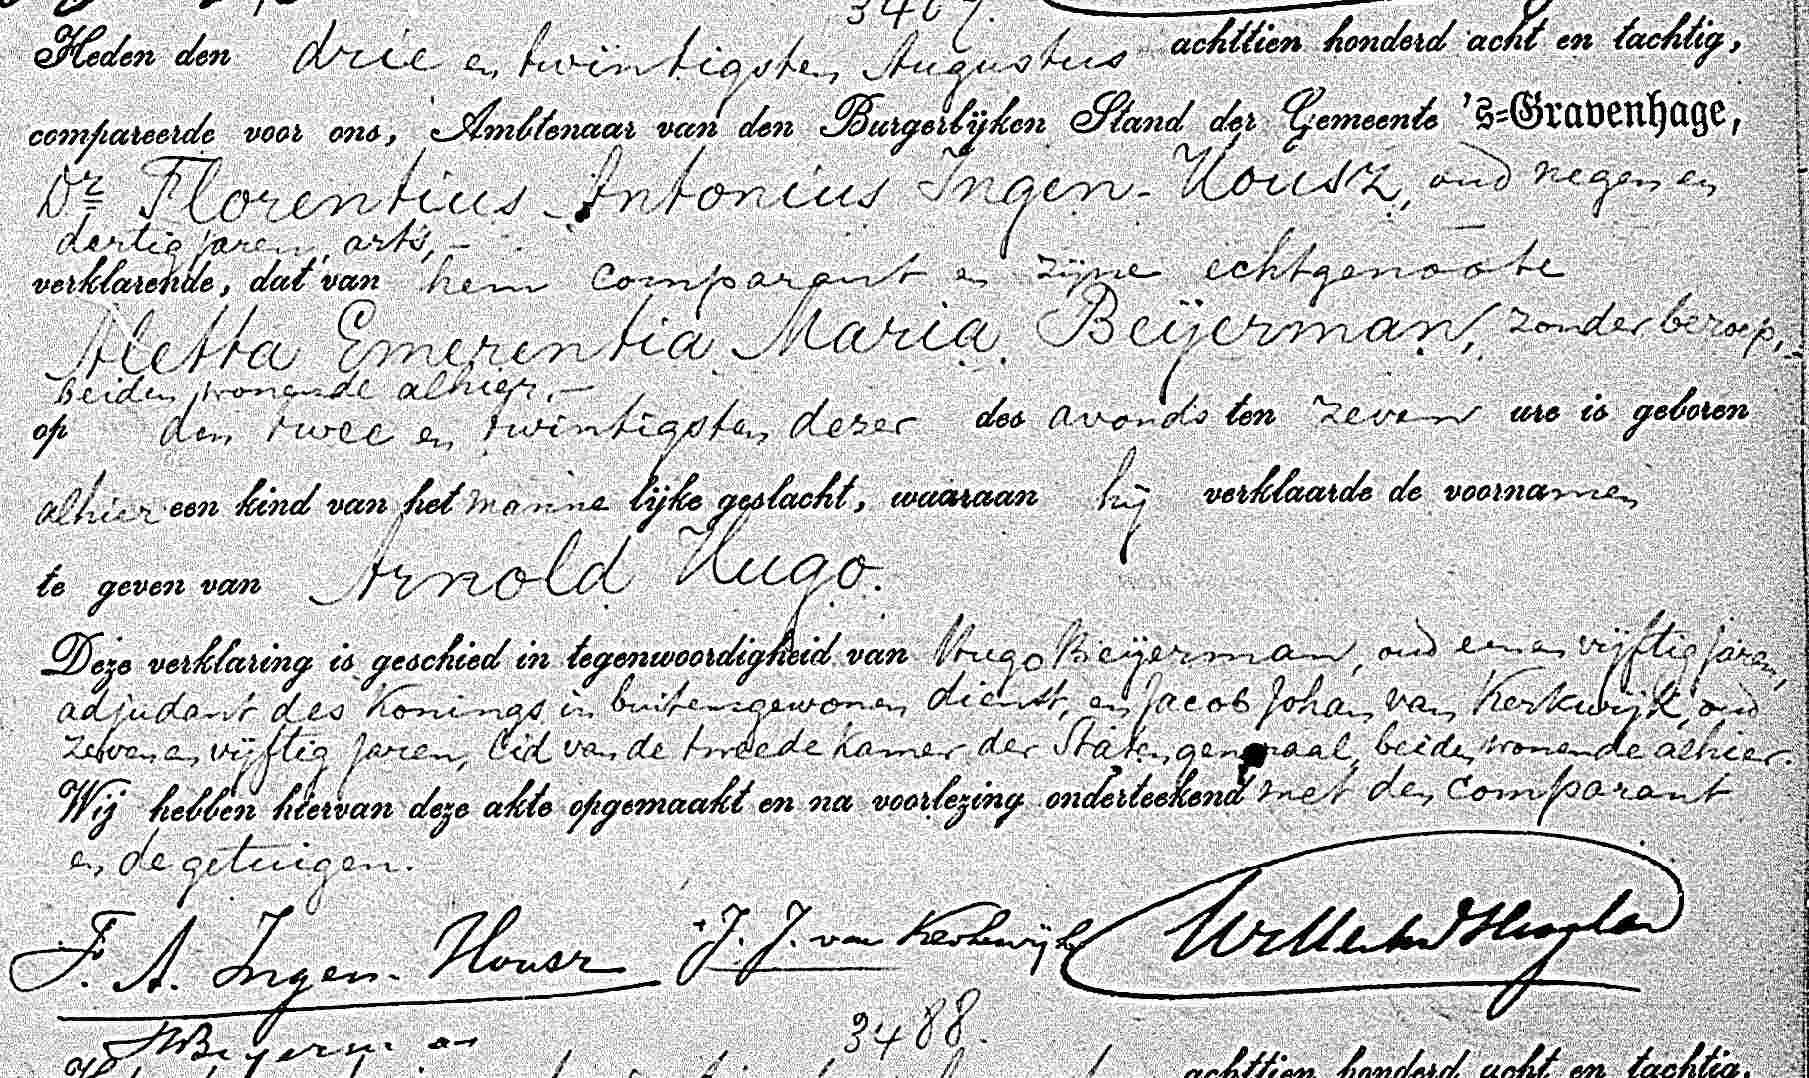 Heden den drie en twintigsten Augustus achttien honderd acht en tachtig,
compareerde voor ons, Ambtenaar van den Burgerlijken Stand der Gemeente 's-Gravenhage,
Dr Florentius Antonius Ingen-Housz, oud negen en
dertig jaren, arts, –
verklarende, dat van hem comparant en zijne echtgenoote
Aletta Emerentia Maria Beijerman, zonder beroep,
beiden wonende alhier, –
op den twee en twintigsten dezer des avonds ten zeven ure is geboren
alhier een kind van het manne lijke geslacht, waaraan hij verklaarde de voornamen
te geven van Arnold Hugo.
Deze verklaring is geschied in tegenwoordigheid van Hugo Beijerman, oud een en vijftig jaren,
adjudant des Konings in buitengewonen dienst, en Jacob Johan van Kerkwijk, oud
zeven en vijftig jaren, lid van de tweede Kamer der Staten generaal, beiden wonende alhier.
Wij hebben hiervan deze akte opgemaakt en na voorlezing onderteekend met den comparant
en de getuigen.
F. A. Ingen-Housz J. J. van Kerkwijk
HBeijerman
3488.
achttien honderd acht en tachtig,